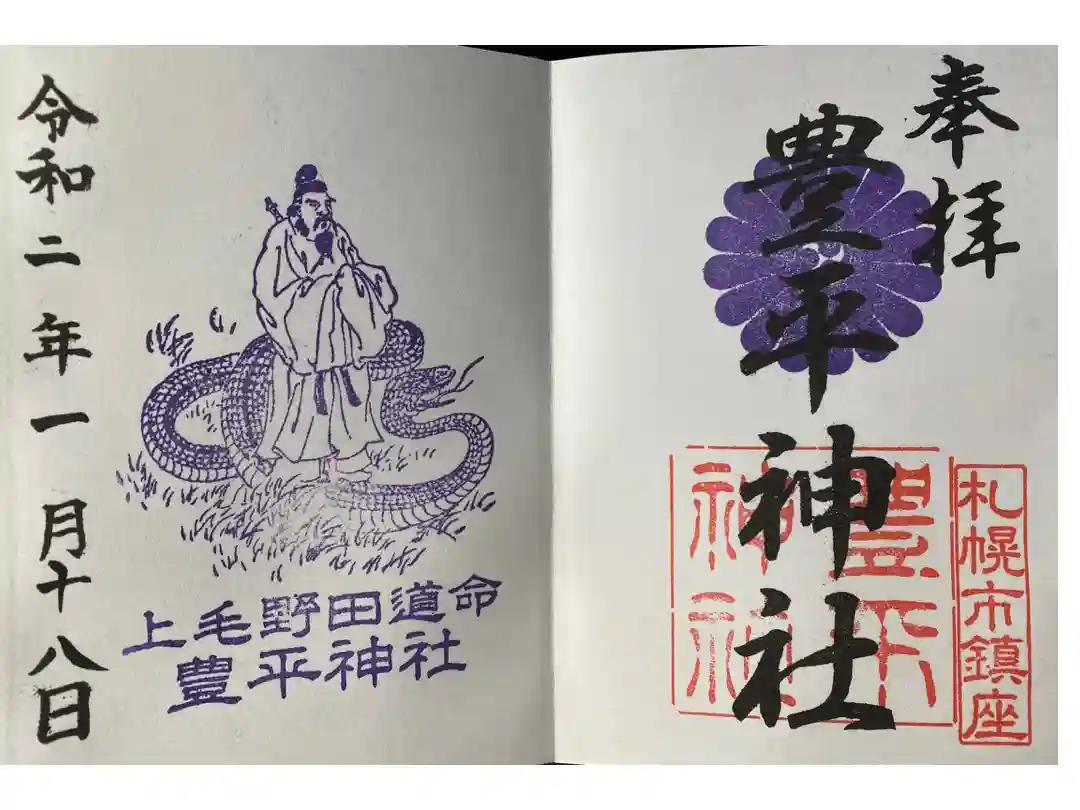 奉拝
豊平神社
札幌市鎮座
豊平
神社
上毛野田道命
豊平神社
令和二年一月十八日